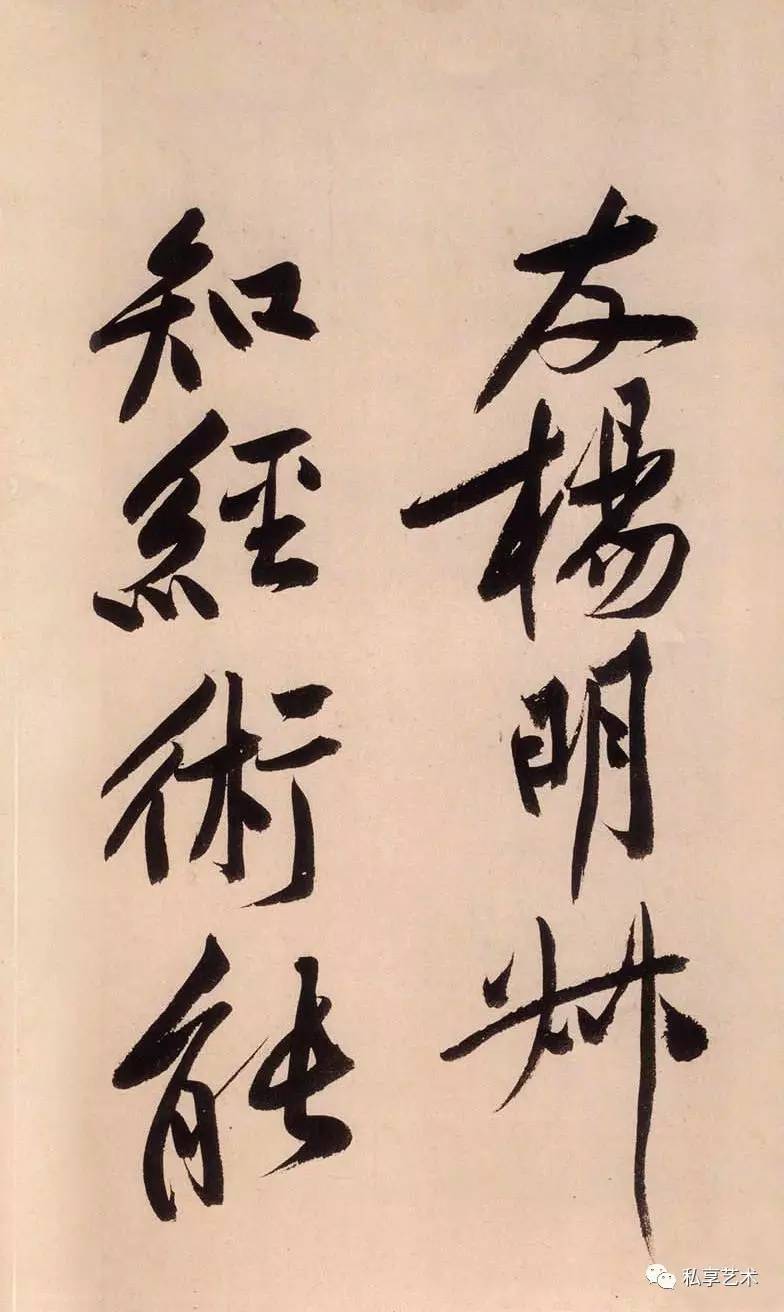 友楊明叔
知經術能
私享艺术